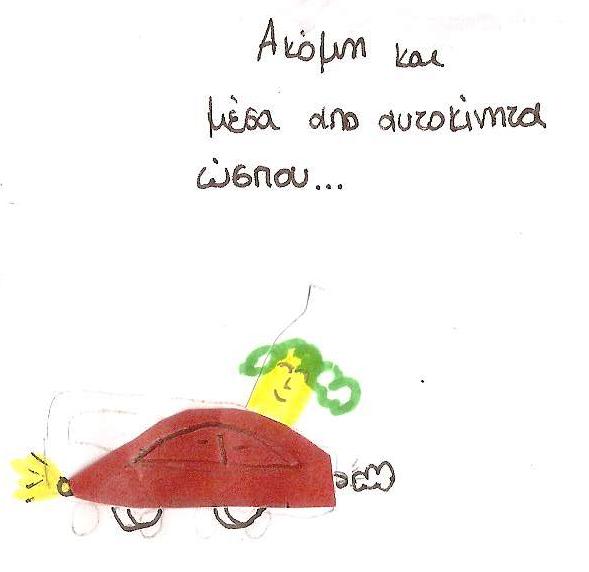 Ακόμη και
μέσα απο αυτοκίνητα
ώσπου...